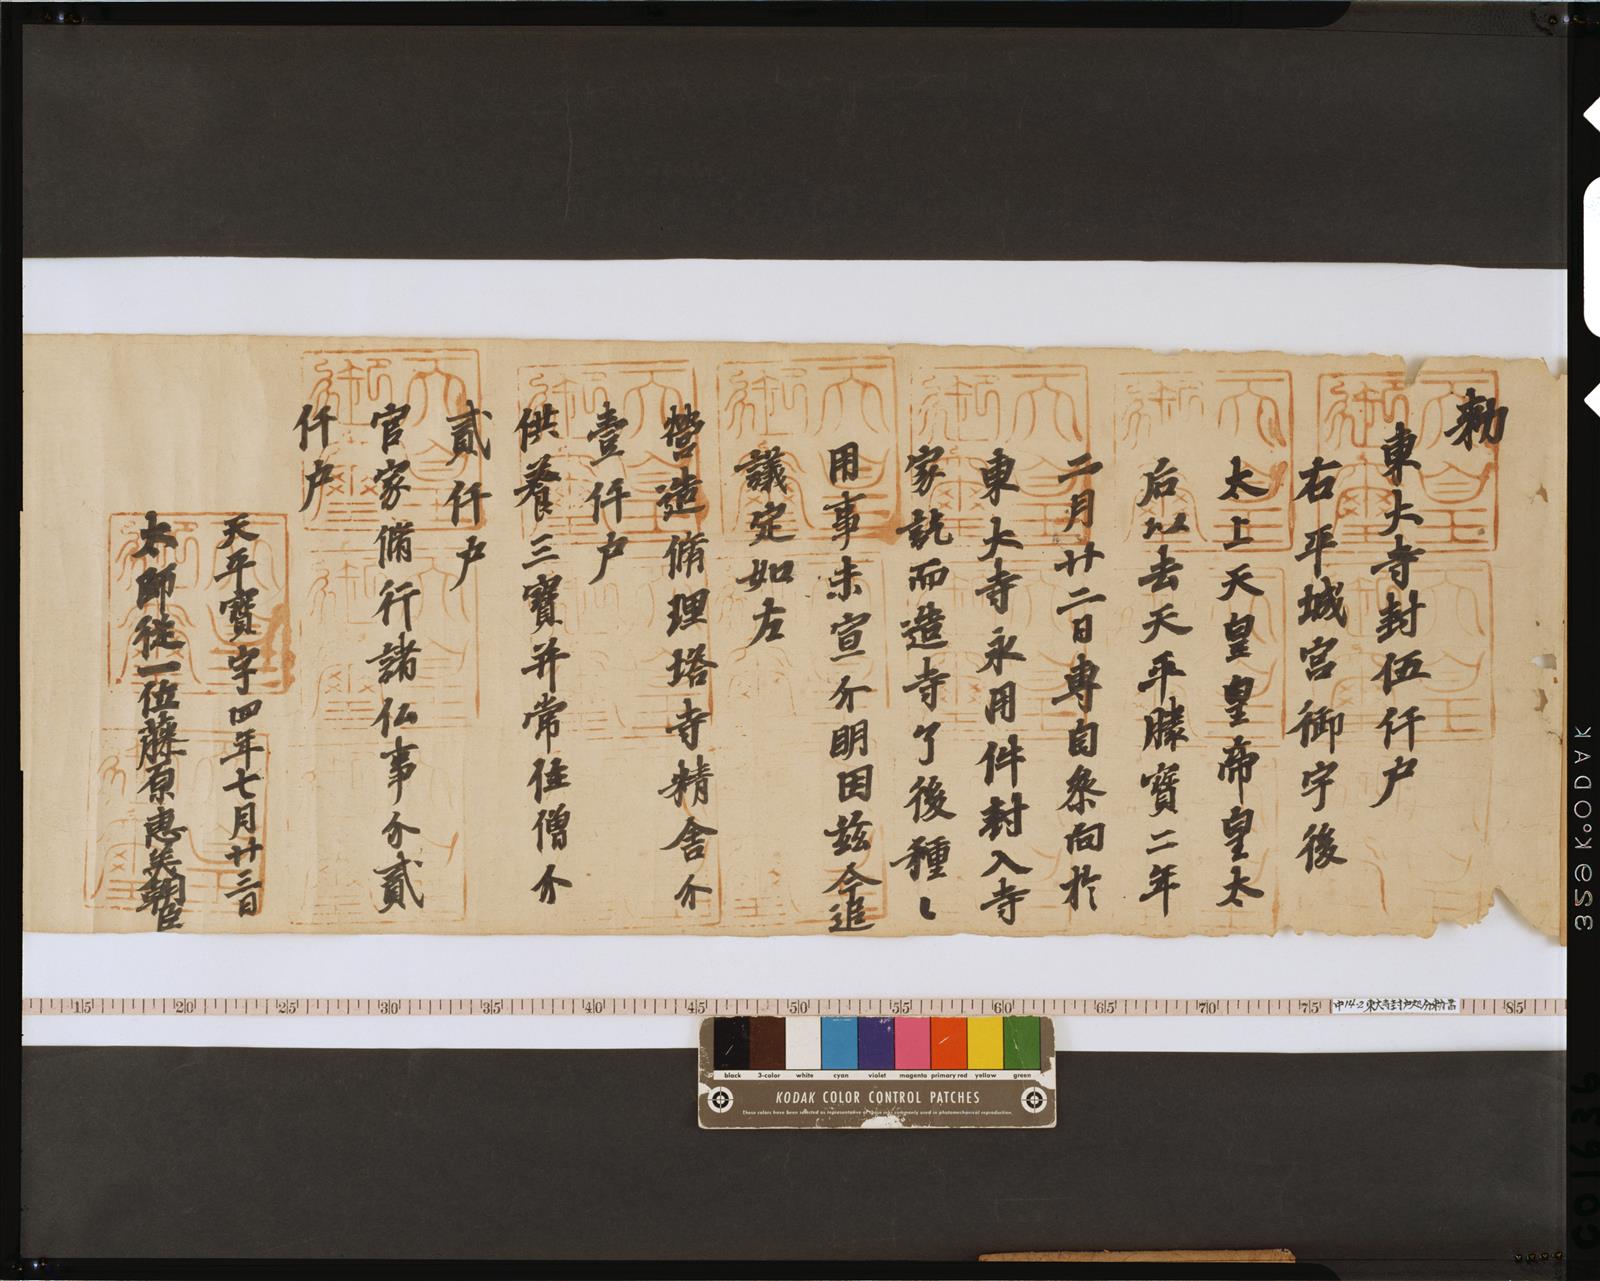 勅
東大寺封伍仟戸
右平城宮御宇後
太上天皇皇帝皇太
后以去天平勝寳二年
二月廿二日専自参向於
東大寺永用件封入寺
家訖而造寺了後種々
用事未宣分明因茲今追
議定如左
營造脩理塔寺精舎分
壹仟戸
供養三寳并常住僧分
貳仟戸
官家脩行諸仏事分貳
仟戸
天平寳字四年七月廿三日
太師従一位藤原恵美朝臣
天皇御璽
中14-2 東大寺封戸処分勅書
15 20 25 30 35 40 45 50 55 60 65 70 75 85
black 3-color white cyan violet magenta primary red yellow green
KODAK COLOR CONTROL PATCHES
KODAK 6SE